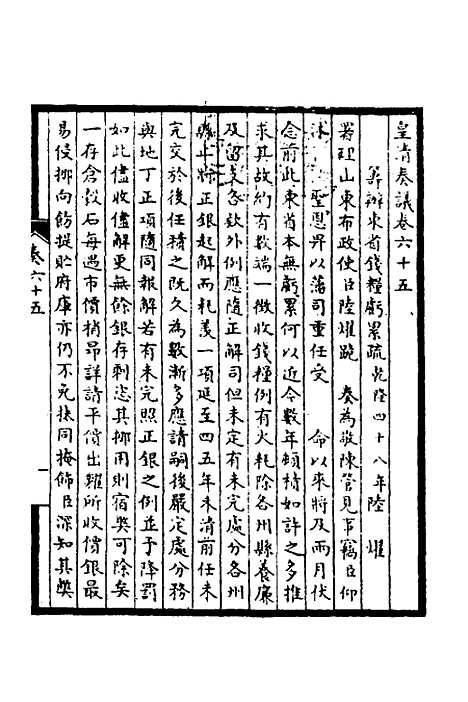 皇清奏議卷六十五
籌辦東省錢糧虧累疏乾隆四十八年陸 燿
署理山東布政使臣陸燿跪 奏為敬陳管見事竊臣仰
沐 聖恩畀以藩司重任受 命以來將及兩月伏
念前此東省本無虧累何以近今數年頓積如許之多推
求其故約有數端一徵收錢糧例有火耗除各州縣養廉
及留支各欵外例應隨正解司但未定有未完處分各州
縣止將正銀起解而耗羨一項延至四五年未清前任未
完交於後任積之既久為數漸多應請嗣後嚴定處分務
與地丁正項隨同報解若有未完照正銀之例並予降罰
如此儘收儘解更無餘銀存剩恣其挪用則宿弊可除矣
一存倉穀石每遇市價稍昂詳請平價出糶所收價銀最
易侵挪向飭提貯府庫亦仍不免扶同掩飾臣深知其弊
卷六十五
一